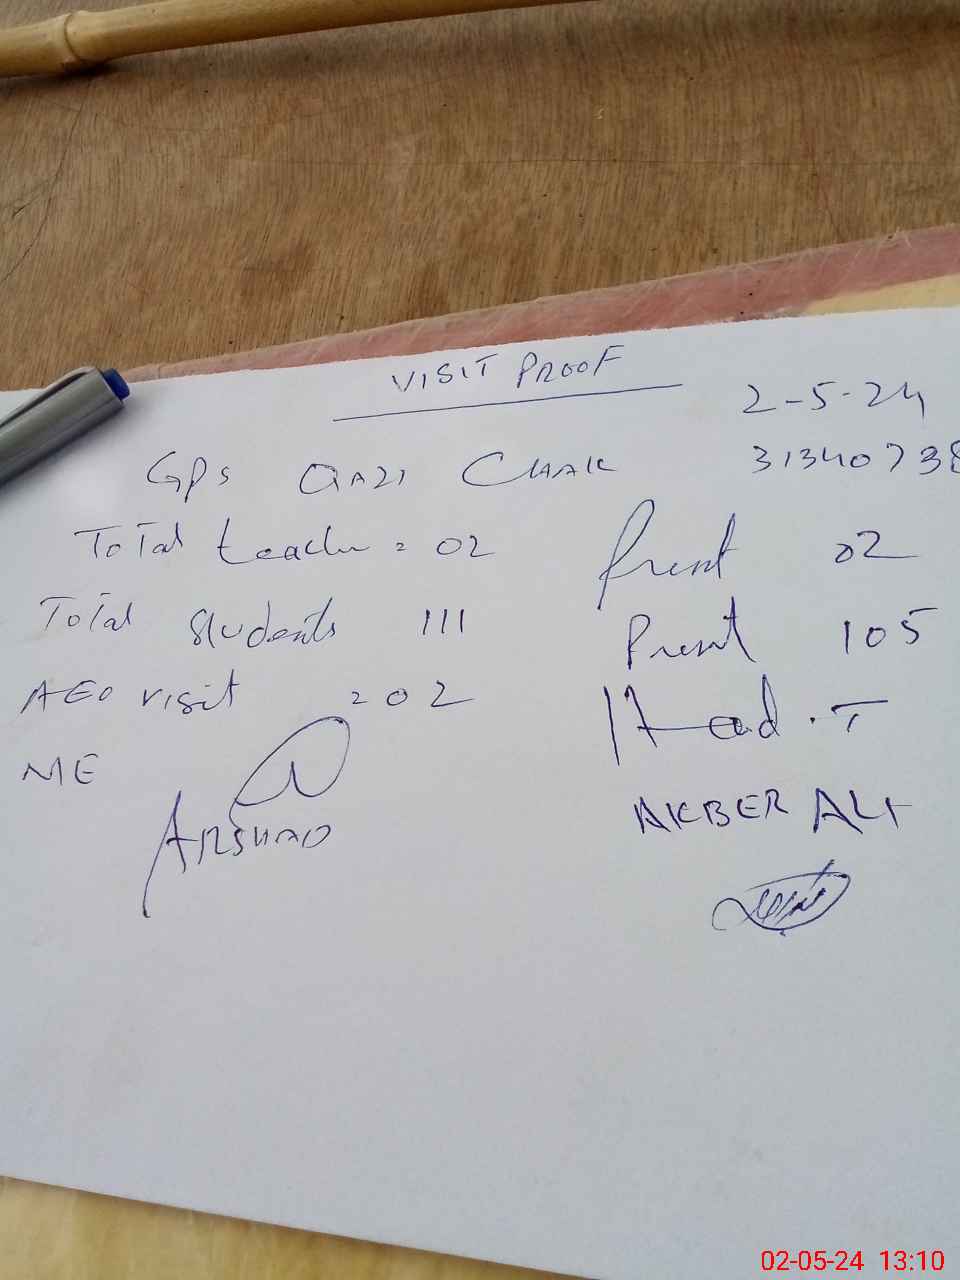 VISIT PROOF
2-5-24
GPS QAZI CHAK 31340738
Total teacher = 02 Present 02
Total students 111 Present 105
AEO visit = 02 Head.T
ME
ARSHAD AKBER ALI
02-05-24 13:10